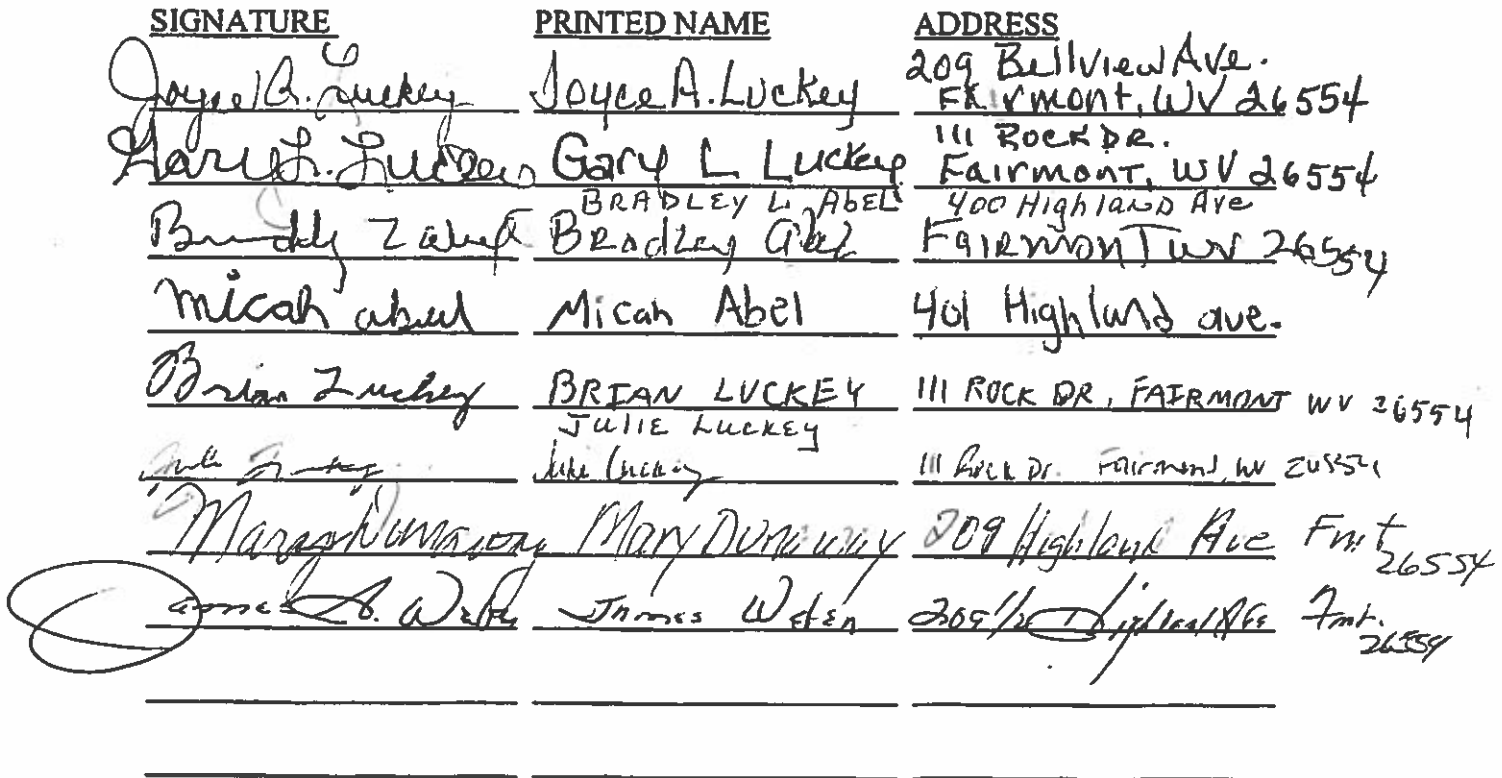 SIGNATURE PRINTED NAME ADDRESS
209 Bellview Ave.
Joyce A. Luckey Joyce A. Luckey Fairmont, WV 26554
111 Rock DR.
Gary L. Luckey Gary L Luckey Fairmont, WV 26554
BRADLEY L ABEL 400 Highland Ave
Bradley L Abel Bradley Abel Fairmont WV 26554
Micah Abel Micah Abel 401 Highland ave.
Brian Luckey BRIAN LUCKEY 111 ROCK DR, FAIRMONT WV 26554
JULIE LUCKEY
Julie Luckey Julie Luckey 111 Rock Dr. Fairmont, WV 26554
Mary Dunaway Mary Dunaway 209 Highland Ave Fmt
26554
James A. James 209 1/2 Highland Ave Fmt.
26554